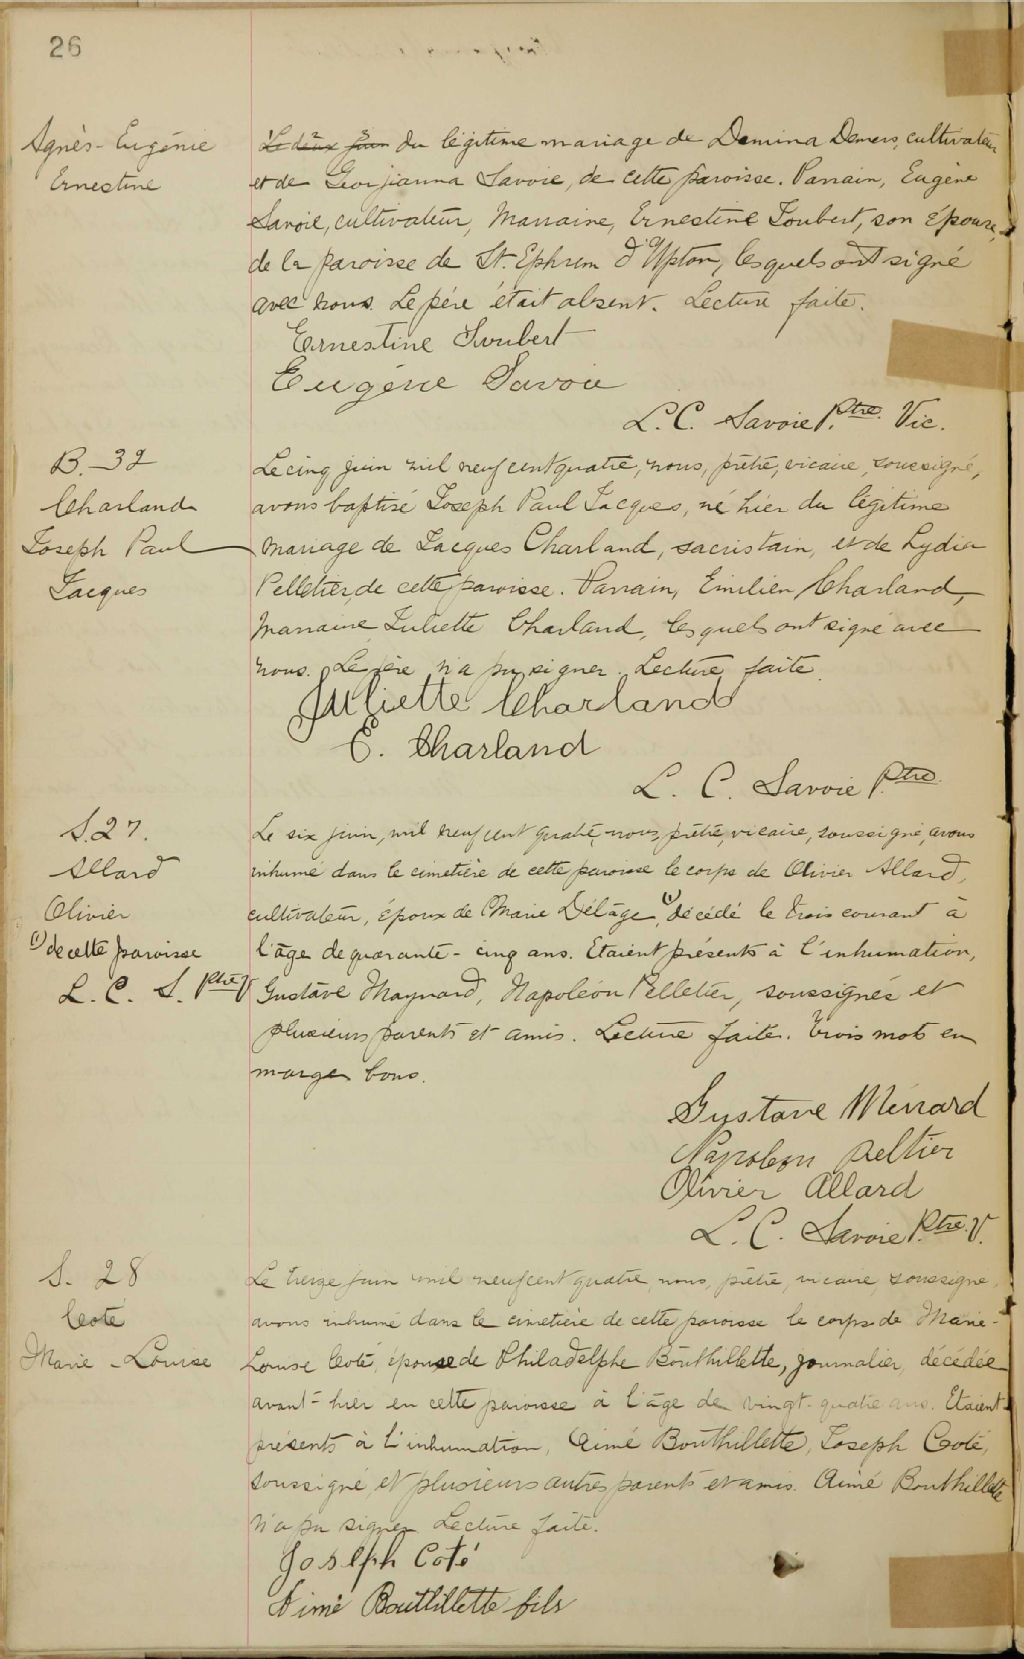 26
Agnès-Eugénie
Ernestine
Le deux juin du légitime mariage de Domina Demers, cultivateur
et de Georgianna Savoie, de cette paroisse. Parrain, Eugène
Savoie, cultivateur, Marraine, Ernestine Joubert, son épouse,
de la paroisse de St. Ephrem d'Upton, lesquels ont signé
avec nous. Le père était absent. Lecture faite.
Ernestine Joubert
Eugène Savoie
L. C. Savoie Ptre. Vic.
B. 32
Charland
Joseph Paul
Jacques
Le cinq juin mil neuf cent quatre, nous, prêtre, vicaire, soussigné,
avons baptisé Joseph Paul Jacques, né hier du légitime
mariage de Jacques Charland, sacristain, et de Lydia
Pelletier, de cette paroisse. Parrain, Emilien Charland,
marraine Juliette Charland, lesquels ont signé avec
nous. Le père n'a pu signer. Lecture faite.
Juliette Charland
E. Charland
L. C. Savoie Ptre
S. 27.
Allard
Olivier
(1) de cette paroisse
L. C. S. Ptre V
Le six juin, mil neuf cent quatre, nous, prêtre, vicaire, soussigné, avons
inhumé dans le cimetière de cette paroisse le corps de Olivier Allard,
cultivateur, époux de Marie Délâge, (1) décédé le trois courant à
l'âge de quarante-cinq ans. Etaient présents à l'inhumation,
Gustave Maynard, Napoléon Pelletier, soussignés et
plusieurs parents et amis. Lecture faite. Trois mots en
marge bons.
Gustave Ménard
Napoleon Peltier
Olivier Allard
L. C. Savoie Ptre. V.
S. 28
Coté
Marie-Louise
Le treize juin mil neuf cent quatre, nous, prêtre, vicaire, soussigné,
avons inhumé dans le cimetière de cette paroisse le corps de Marie-
Louise Coté, épouse de Philadelphe Bouthillette, journalier, décédée
avant-hier en cette paroisse à l'âge de vingt-quatre ans. Etaient
présents à l'inhumation, Aimé Bouthillette, Joseph Coté,
soussigné, et plusieurs autres parents et amis. Aimé Bouthillette
n'a pu signer. Lecture faite.
Joseph Coté
Aimé Bouthillette fils